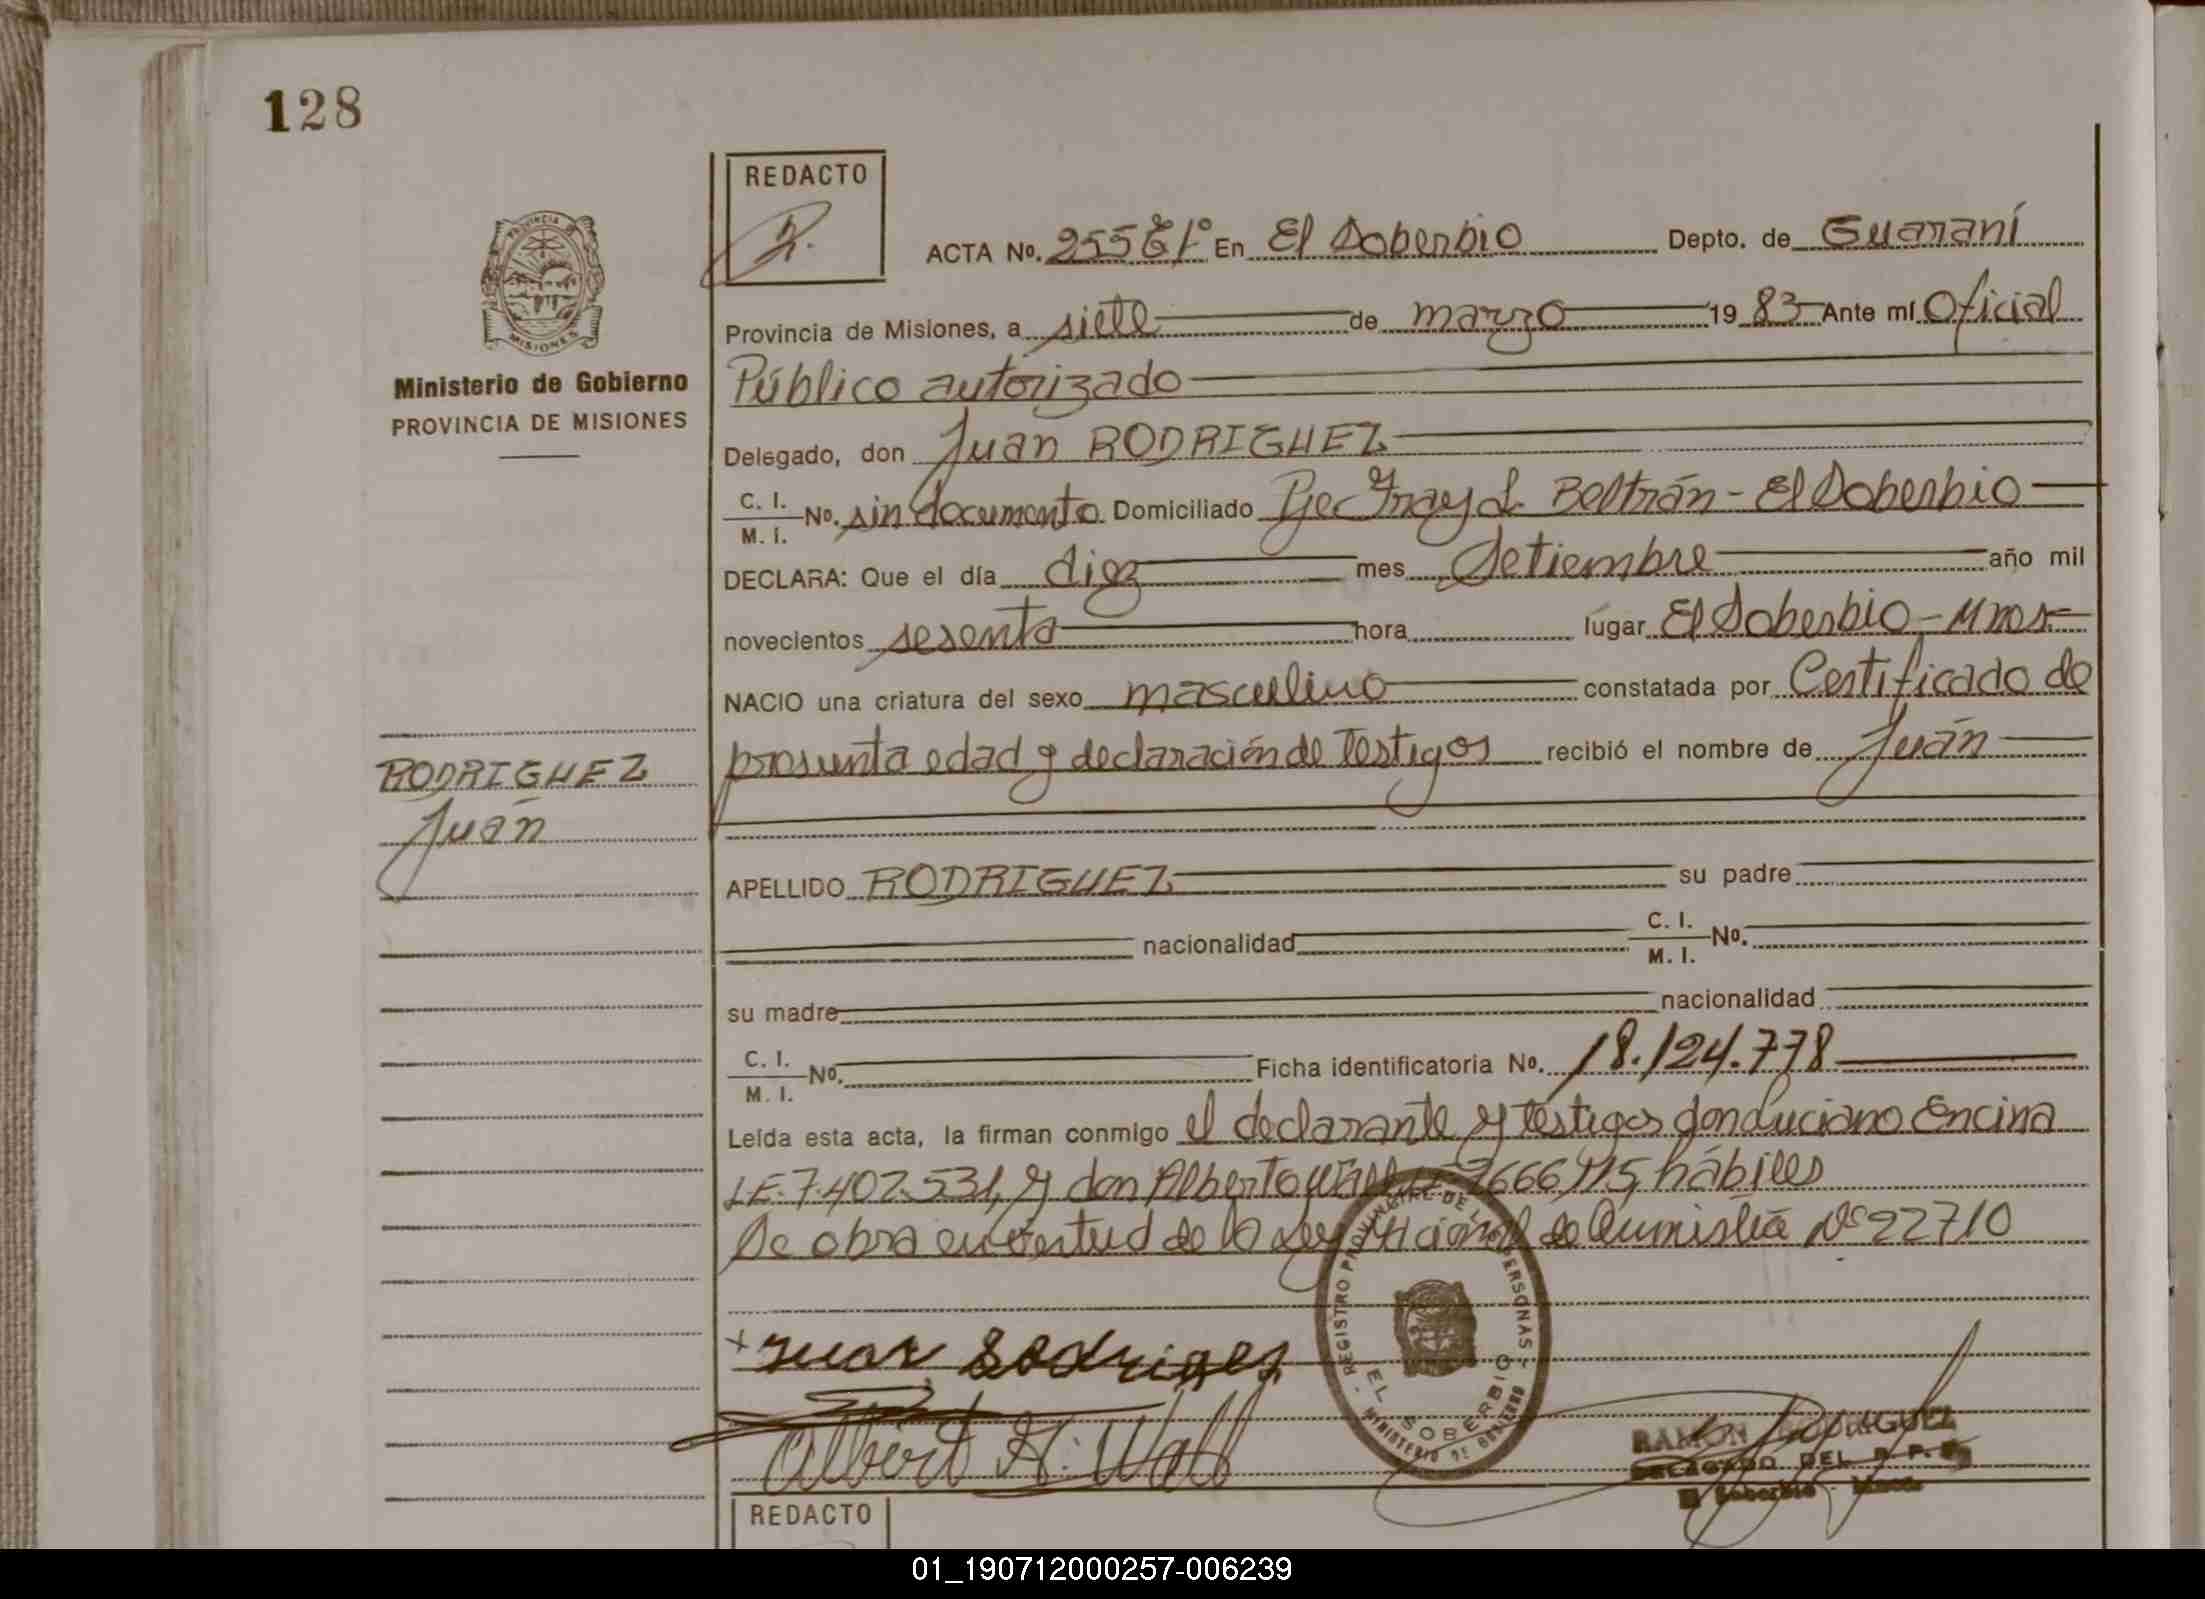 128
REDACTO
ACTA Nº. 255 En El Soberbio Depto. de Guaraní
Provincia de Misiones, a siete de marzo 1983 Ante mí Oficial
Público autorizado
Delegado, don Juan RODRIGUEZ
C. I. M. I. No. sin documento Domiciliado Fray L. Beltrán - El Soberbio
DECLARA: Que el día diez mes Setiembre año mil
novecientos sesenta hora lugar El Soberbio - Mnes
NACIO una criatura del sexo masculino constatada por Certificado de
presunta edad y declaración de Testigos recibió el nombre de Juán
APELLIDO RODRIGUEZ su padre
nacionalidad C. I. M. I. No.
su madre nacionalidad
C. I. M. I. No. Ficha identificatoria Nº. 18.124.778
Leída esta acta, la firman conmigo el declarante y testigos don Luciano Encina
L.E. 7.402.531, y don Alberto hábiles
De obra en virtud de la Ley Nacional de Nº 22710
Juan Rodrigues
Albert H. Wall
PROVINCIA
MISIONES
Ministerio de Gobierno
PROVINCIA DE MISIONES
RODRIGUEZ
Juán
REGISTRO PROVINCIAL DE LAS PERSONAS
EL SOBERBIO
MINISTERIO DE GOBIERNO
RAMON RODRIGUEZ
DELEGADO DEL R. P. P.
El Soberbio - Mnes.
REDACTO
01_190712000257-006239